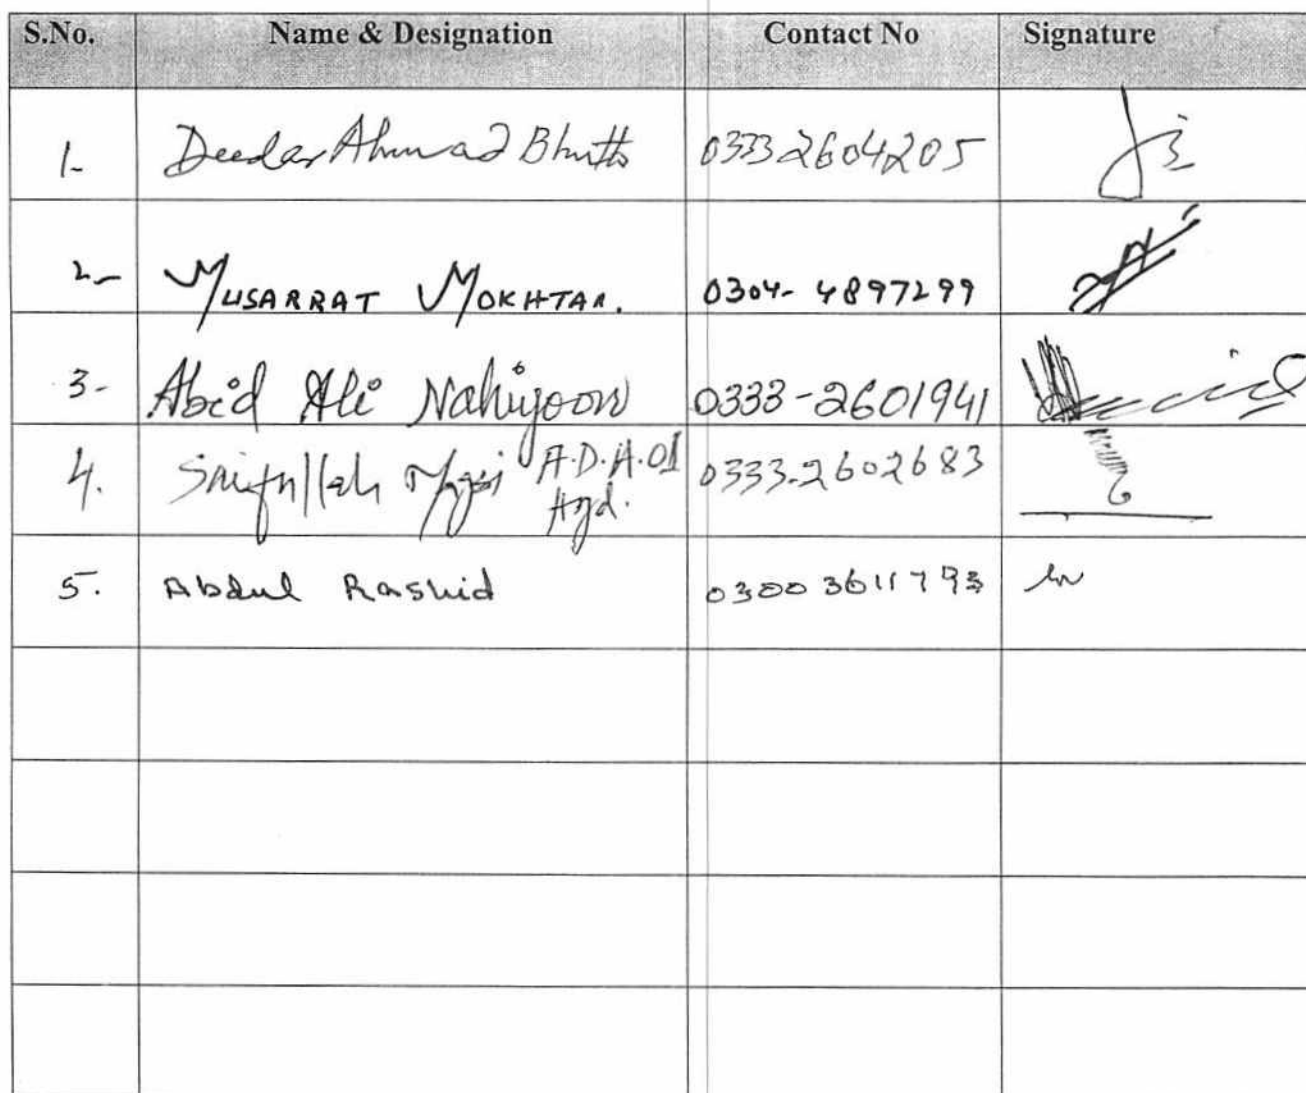 S.No. Name & Designation Contact No Signature
1- Deedar Ahmad Bhutto 03332604205
2- MUSARRAT MOKHTAR. 0304-4897299
3- Abid Ali Nahiyoon 0333-2601941
4. Saifullah A.D.A. 0333-2602683
Hyd.
5. Abdul Rashid 03003611793